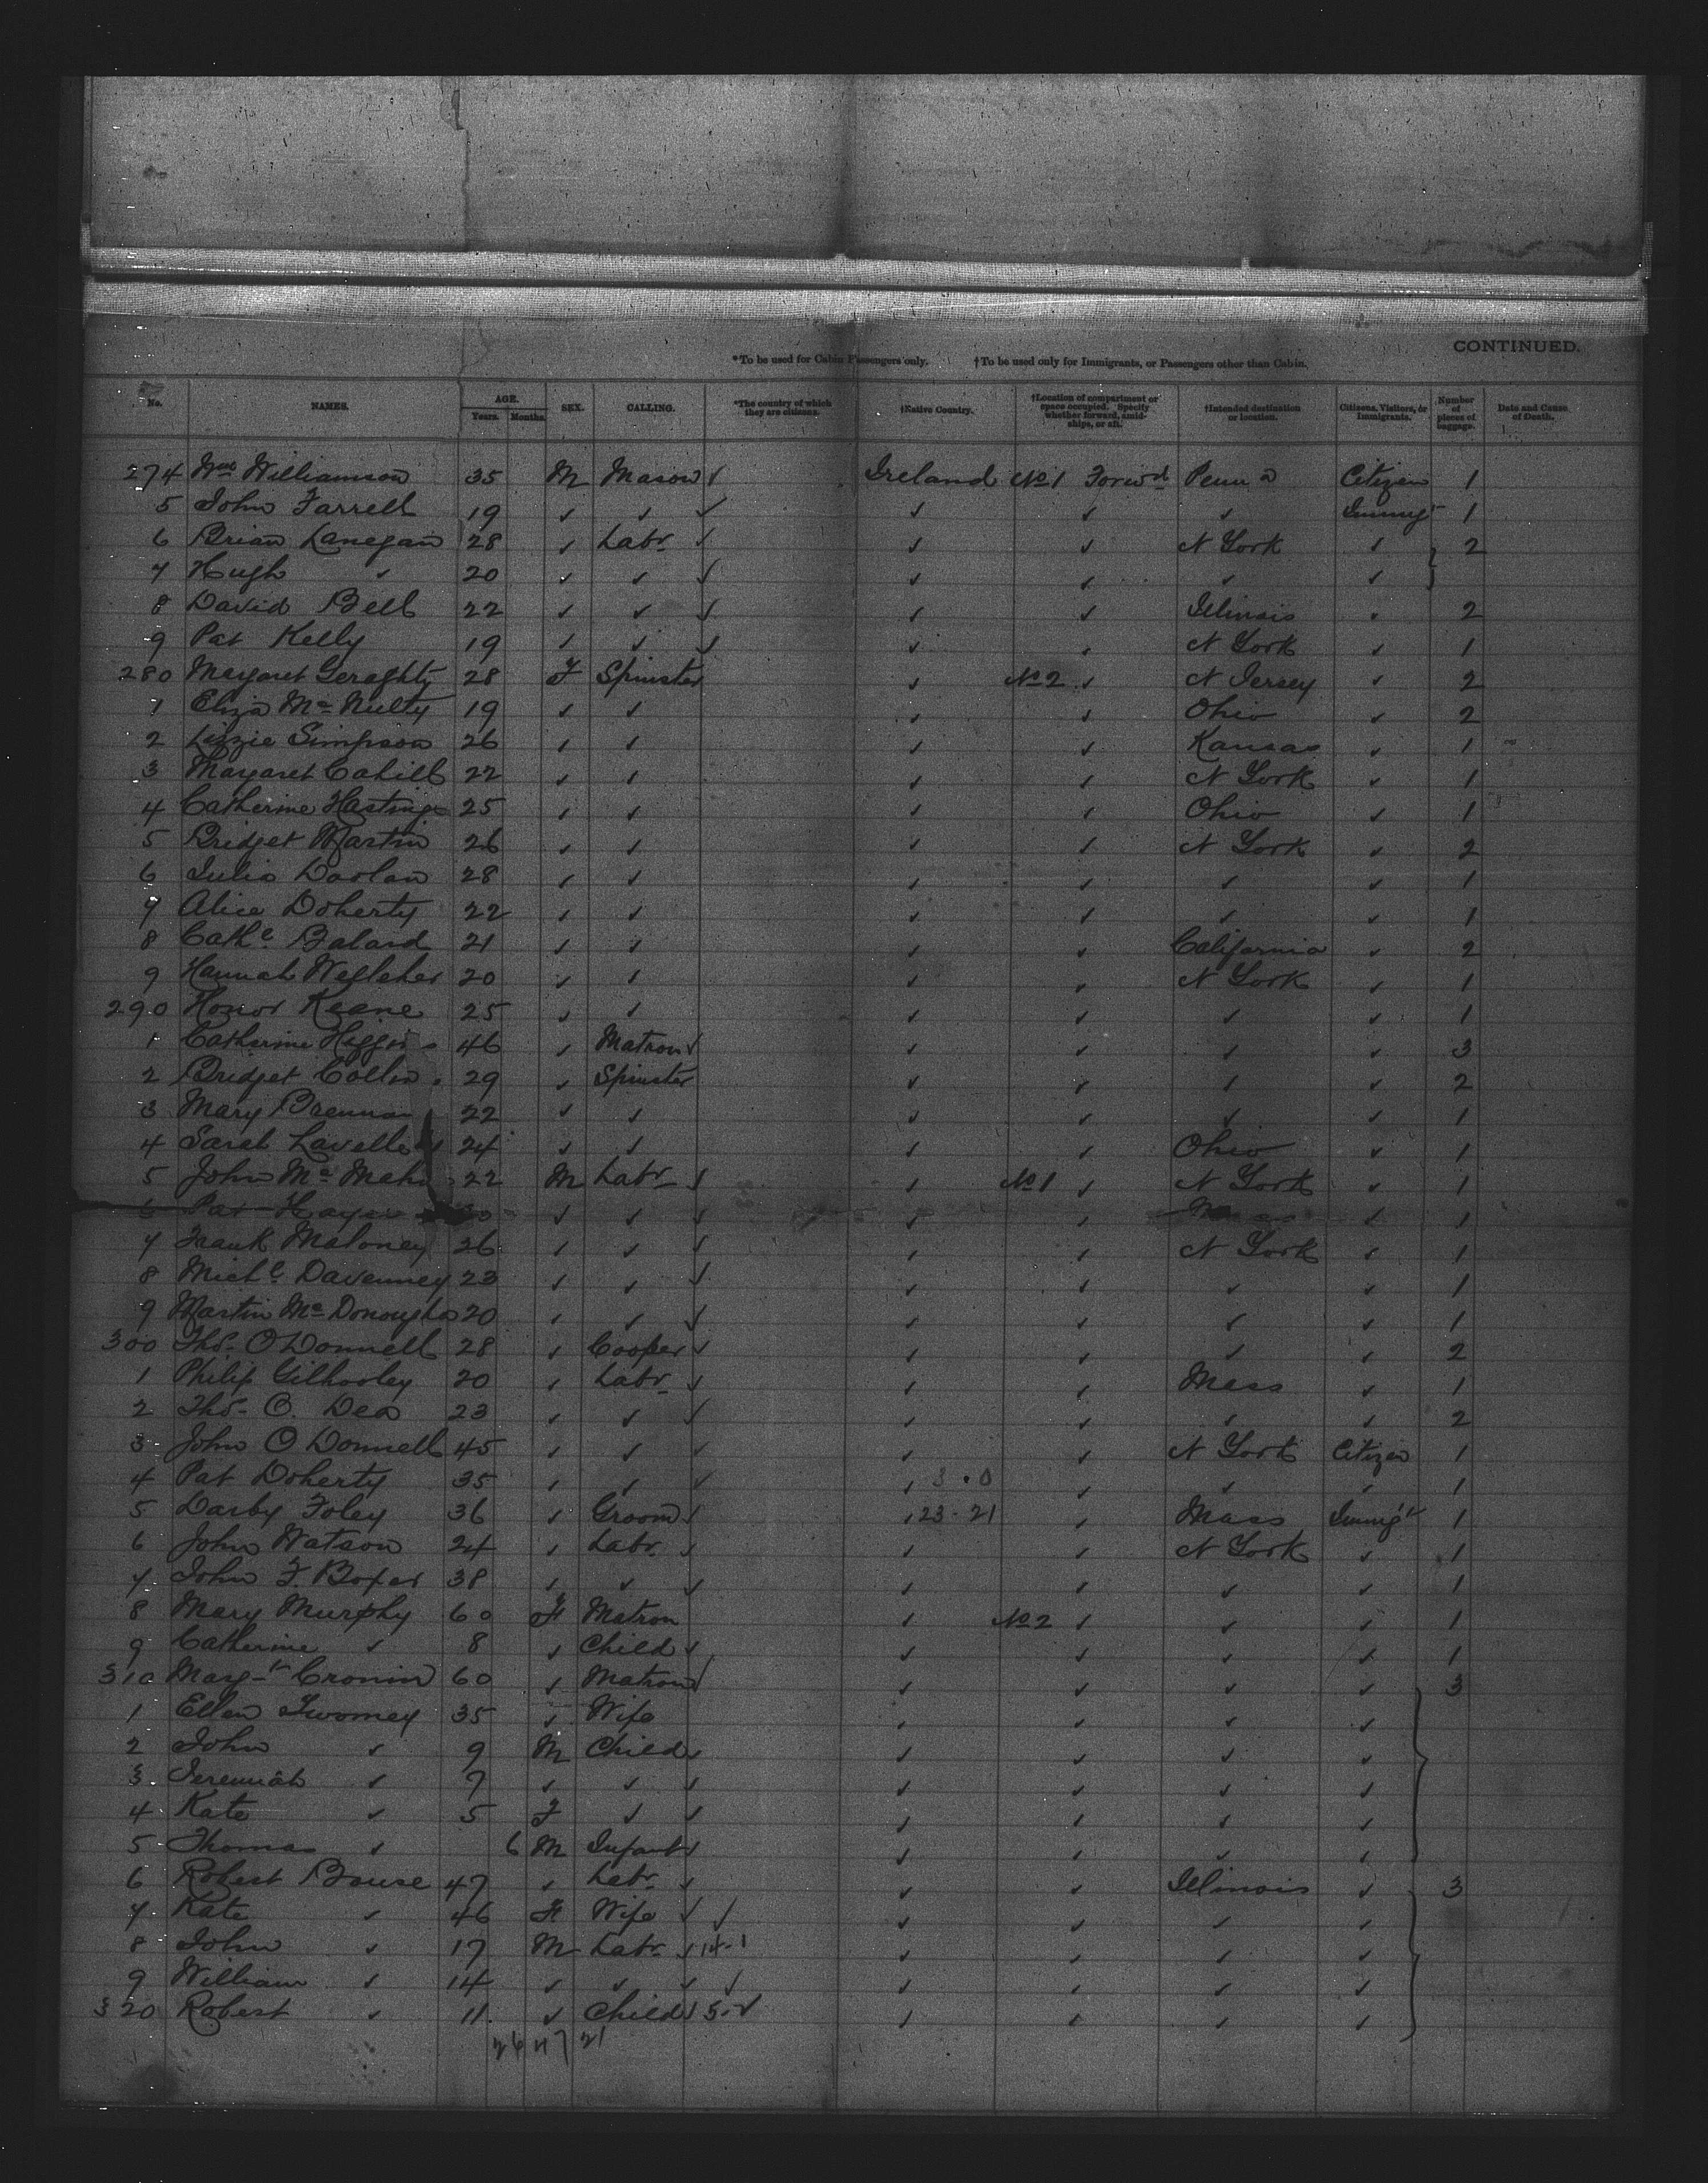 CONTINUED.
*To be used for Cabin Passengers only. †To be used only for Immigrants, or Passengers other than Cabin.
No. NAMES. AGE. Years. Months. SEX. CALLING. *The country of which they are citizens. †Native Country. †Location of compartment or space occupied. Specify whether forward, amidships, or aft. †Intended destination or location. Citizens, Visitors, or Immigrants. Number of pieces of baggage. Date and Cause of Death.
274 Wm Williamson 35 M Mason ✓ Ireland No 1 Forwd Penna Citizen 1
5 John Farrell 19 ✓ ✓ ✓ ✓ ✓ ✓ Immigt 1
6 Brian Lanegan 28 ✓ Labr ✓ ✓ ✓ N York ✓ 2
7 Hugh ✓ 20 ✓ ✓ ✓ ✓ ✓ ✓ ✓
8 David Bell 22 ✓ ✓ ✓ ✓ ✓ Illinois ✓ 2
9 Pat Kelly 19 ✓ ✓ ✓ ✓ ✓ N York ✓ 1
280 Margaret Geraghty 28 F Spinster ✓ No 2 ✓ N Jersey ✓ 2
1 Eliza Mc Nulty 19 ✓ ✓ ✓ ✓ Ohio ✓ 2
2 Lizzie Simpson 26 ✓ ✓ ✓ ✓ Kansas ✓ 1
3 Margaret Cahill 22 ✓ ✓ ✓ ✓ N York ✓ 1
4 Catherine Hastings 25 ✓ ✓ ✓ ✓ Ohio ✓ 1
5 Bridget Martin 26 ✓ ✓ ✓ ✓ N York ✓ 2
6 Julia Doolan 28 ✓ ✓ ✓ ✓ ✓ ✓ 1
7 Alice Doherty 22 ✓ ✓ ✓ ✓ ✓ ✓ 1
8 Cathe Baland 21 ✓ ✓ ✓ ✓ California ✓ 2
9 Hannah 20 ✓ ✓ ✓ ✓ N York ✓ 1
290 Honor Keane 25 ✓ ✓ ✓ ✓ ✓ ✓ 1
1 Catherine Higgins 46 ✓ Matron ✓ ✓ ✓ ✓ ✓ 3
2 Bridget Collins 29 ✓ Spinster ✓ ✓ ✓ ✓ 2
3 Mary Brennan 22 ✓ ✓ ✓ ✓ ✓ ✓ 1
4 Sarah 24 ✓ ✓ ✓ ✓ Ohio ✓ 1
5 John Mc 22 M Labr ✓ ✓ No 1 ✓ N York ✓ 1
6 Pat Hayes ✓ ✓ ✓ ✓ ✓ ✓ 1
7 Frank Maloney 26 ✓ ✓ ✓ ✓ ✓ N York ✓ 1
8 Michl Davenney 23 ✓ ✓ ✓ ✓ ✓ ✓ ✓ 1
9 Martin Mc Donough 20 ✓ ✓ ✓ ✓ ✓ ✓ ✓ 1
300 Thos O Donnell 28 ✓ Cooper ✓ ✓ ✓ ✓ ✓ 2
1 Philip Gilhooley 20 ✓ Labr ✓ ✓ ✓ Mass ✓ 1
2 Thos O. Dea 23 ✓ ✓ ✓ ✓ ✓ ✓ ✓ 2
3 John O Donnell 45 ✓ ✓ ✓ ✓ ✓ N York Citizen 1
4 Pat Doherty 35 ✓ ✓ ✓ ✓ ✓ ✓ ✓ 1
5 Darby Foley 36 ✓ Groom ✓ ✓ 23-21 ✓ Mass Immigt 1
6 John Watson 24 ✓ Labr ✓ ✓ ✓ N York ✓ 1
7 John F. 38 ✓ ✓ ✓ ✓ ✓ ✓ ✓ 1
8 Mary Murphy 60 F Matron ✓ No 2 ✓ ✓ ✓ 1
9 Catherine ✓ 8 ✓ Child ✓ ✓ ✓ ✓ ✓ 1
310 Margt Cronin 60 ✓ Matron ✓ ✓ ✓ ✓ ✓ 3
1 Ellen Twomey 35 ✓ Wife ✓ ✓ ✓ ✓
2 John ✓ 9 M Child ✓ ✓ ✓ ✓ ✓
3 Jeremiah ✓ 7 ✓ ✓ ✓ ✓ ✓ ✓ ✓
4 Kate ✓ 5 F ✓ ✓ ✓ ✓ ✓ ✓
5 Thomas ✓ 6 M Infant ✓ ✓ ✓ ✓ ✓
6 Robert Bouse 47 ✓ Labr ✓ ✓ ✓ Illinois ✓ 3
7 Kate ✓ 46 F Wife ✓ ✓ ✓ ✓ ✓ ✓
8 John ✓ 17 M Labr ✓ 14-1 ✓ ✓ ✓ ✓
9 William ✓ 14 ✓ ✓ ✓ ✓ ✓ ✓ ✓ ✓
320 Robert ✓ 11 ✓ Child ✓ ✓ ✓ ✓ ✓
26 47 21